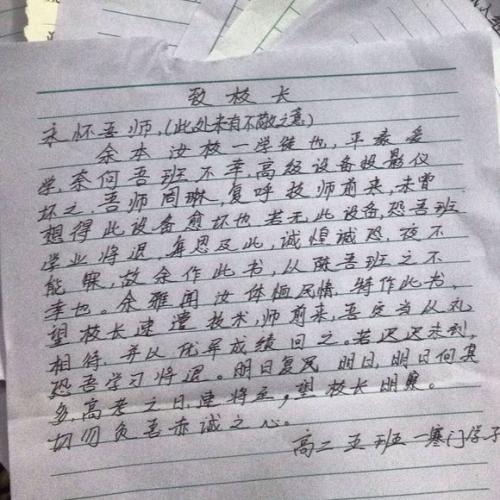 致校长
宋怀玉师,(此处未有不敬之意)
余本汝校一学徒也,平素爱
学,奈何吾班不幸,高级设备投影仪
坏之,吾师周琳,复呼技师前来,未曾
想得此设备愈坏也,若无此设备,恐吾班
学业将退,每思及此,诚惶诚恐,夜不
能寐,故余作此书,以陈吾班之不
幸也。余雅闻汝体恤民情,特作此书,
望校长速遣技术师前来,吾定当以礼
相待,并以优异成绩回之。若迟迟未到,
恐吾学习将退。明日复明日,明日何其
多,高考之日速将至,望校长明察。
切勿负吾赤诚之心。
高二五班一寒门学子